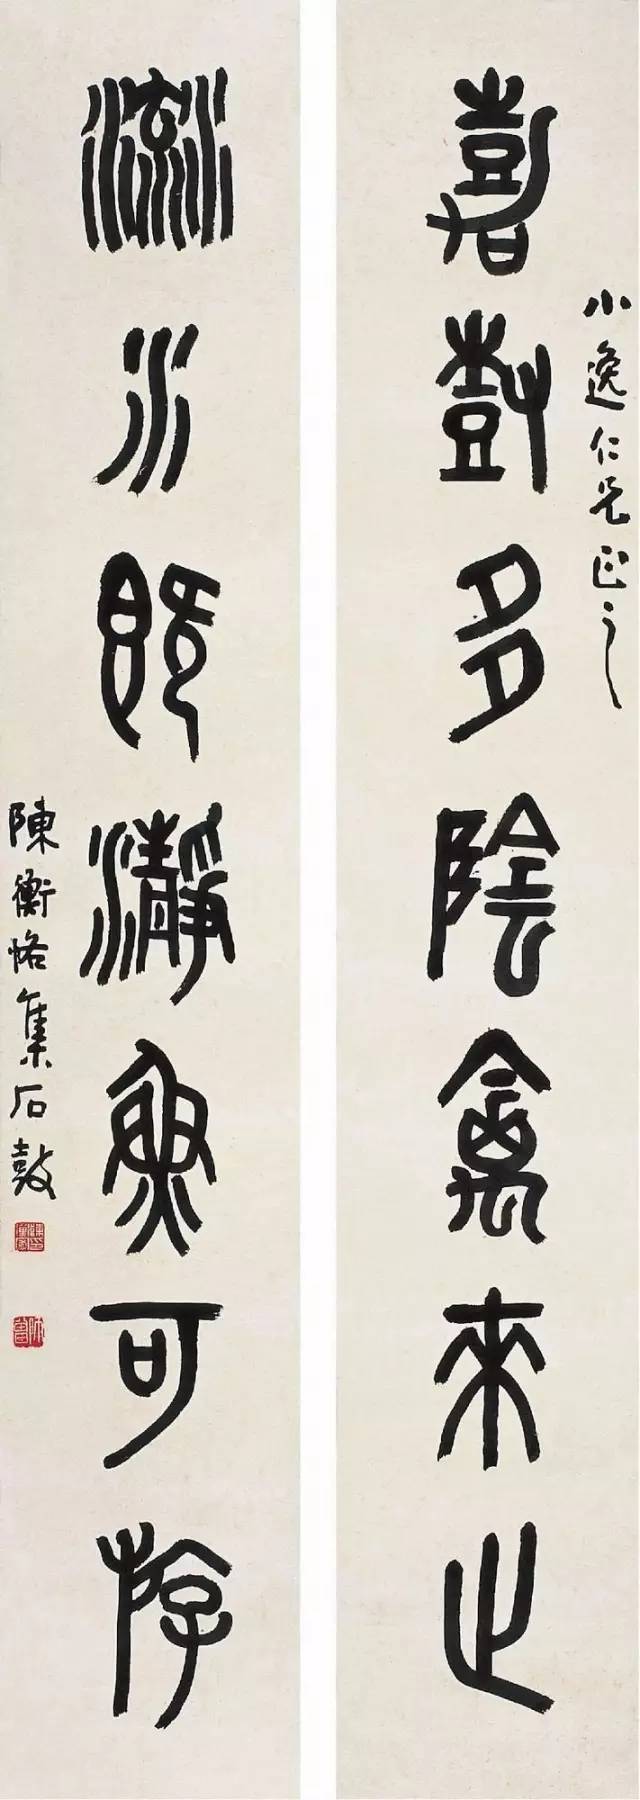 嘉樹多陰禽來止
小逸仁兄正之
流水既瀞魚可斿
陳衡恪集石鼓
師曾